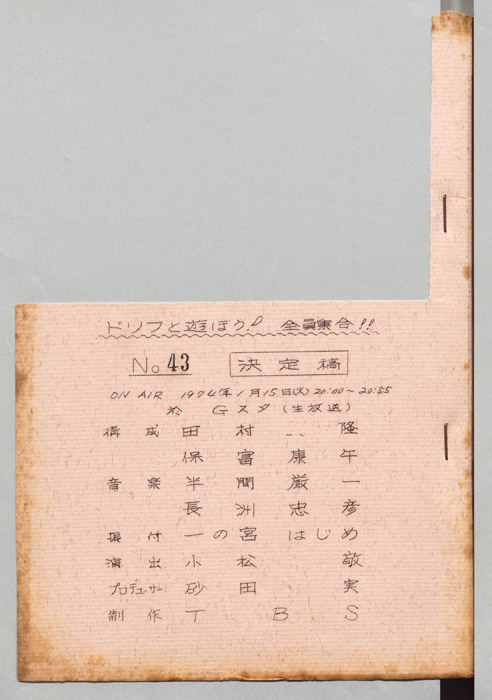 ドリフと遊ぼう!! 全員集合!!
No 43 決定稿
ON AIR 1974年1月15日(火) 20:00~20:55
於 Gスタ(生放送)
構成 田村 隆
保富康午
音楽 半間厳一
長洲忠彦
振付 一の宮はじめ
演出 小松 敬
プロデューサー 砂田 実
制作 TBS